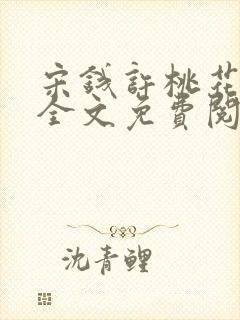 宋錢許桃花
全文免費閱
沈青鯉